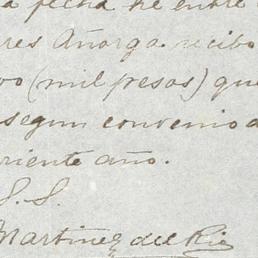 a fecha he entre
res Añorga recibo
vo (mil pesos) que
segun convenio d
riente año.
S. S.
Martinez del Rio